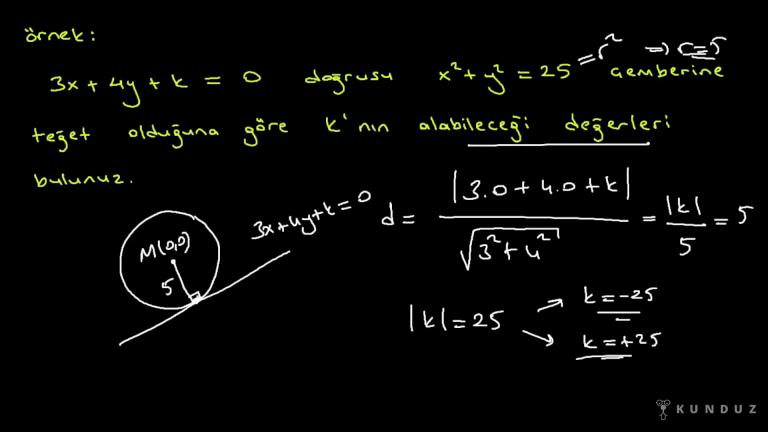 örnek:
3x + 4y + k = 0 doğrusu x² + y² = 25 = r² ⇒ r = 5 çemberine
teğet olduğuna göre k'nın alabileceği değerleri
bulunuz.
M(0,0)
5
3x+4y+k=0
d = |3.0 + 4.0 + k| / √3² + 4² = |k| / 5 = 5
|k| = 25 → k = -25
→ k = +25
KUNDUZ